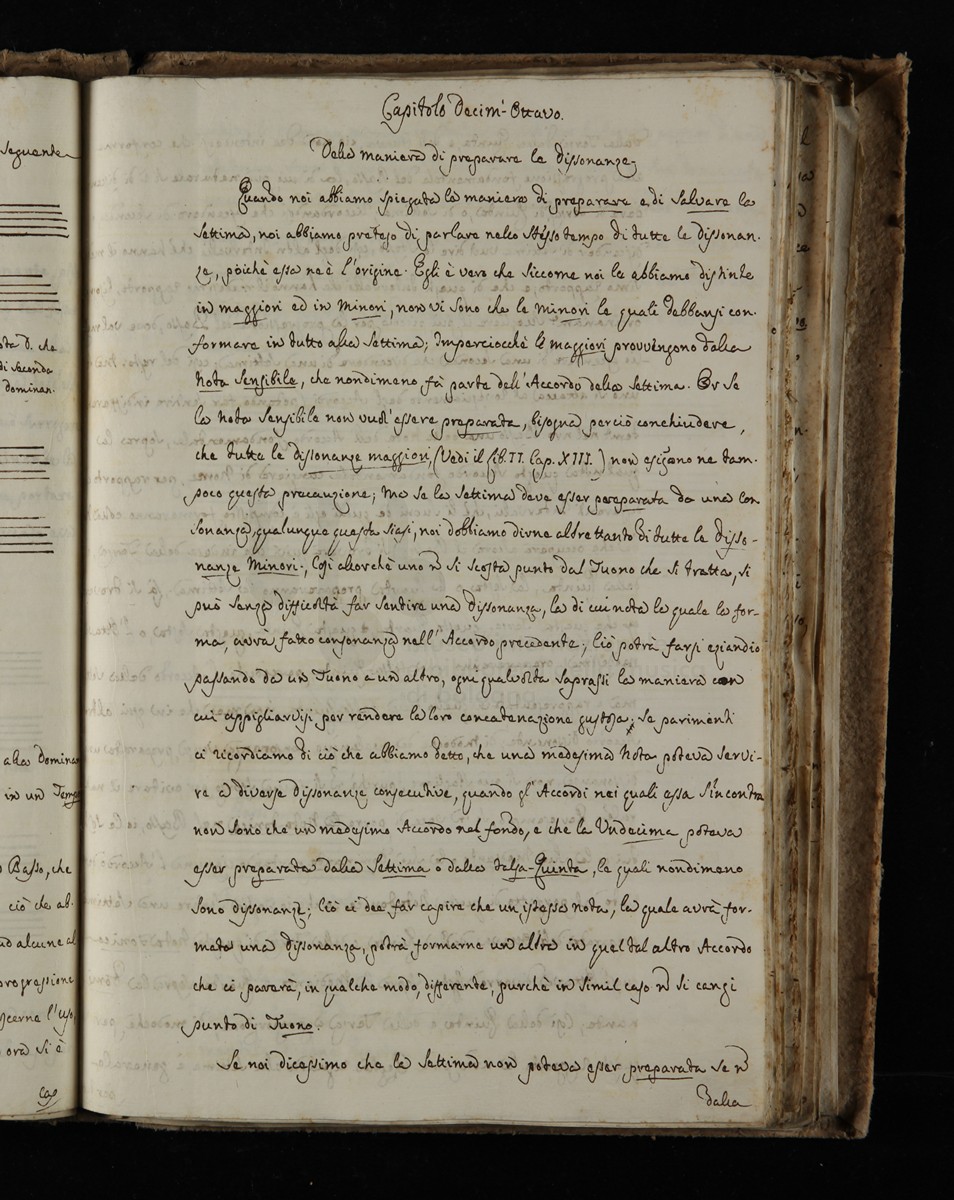 seguente
ota d. che
di seconda
dominan.
alla Domina
in un Temp
o Basso, che
ciò che ab-
ad alcune al
progressione
scerne l'uso
ora si è
Cap
Capitolo Decim'-Ottavo.
Della maniera di preparare le dissonanze.
Quando noi abbiamo spiegata la maniera di preparare e di Salvare la
Settima, noi abbiamo preteso di parlare nello stesso tempo di tutte le dissonan-
ze, poichè essa ne è l'origine. Egli è vero che siccome noi le abbiamo distinte
in maggiori ed in Minori, non vi sono che le Minori le quali debbansi con-
formare in tutto alla Settima; Imperciocchè le maggiori provvengono dalla
Nota Sensibile, che nondimeno fà parte dell'Accordo della Settima. Or se
la Nota Sensibile non vuol'essere preparata, bisogna perciò conchiudere,
che tutte le dissonanze maggiori, (Vedi il Lib. II. Cap. XIII.) non esigono ne tam-
poco questa precauzione; Ma se la Settima deve esser preparata da una Con
sonanza, qualunque questa siasi, noi dobbiamo dirne altrettanto di tutte le disso-
nanze Minori., Così allorchè uno ñ si scosta punto dal Tuono che si tratta, si
può senza difficoltà far sentire una dissonanza, la di cui nota la quale la for-
ma, avrà fatto consonanza nell'Accordo precedente; Ciò potrà farsi eziandio
passando da un Tuono a un altro, ogni qualvolta saprassi la maniera con
cui appigliarvisi per rendere la loro concatenazione gustosa; se parimenti
ci ricordiamo di ciò che abbiamo detto, che una medesima Nota poteva servi-
re a diverse dissonanze consecutive, quando gl'Accordi nei quali essa s'incontra
non sono che un medesimo Accordo nel fondo, e che la Undecima poteva
esser preparata dalla Settima o dalla falsa-Quinta, le quali nondimeno
sono dissonanze; Ciò ci dee far capire che un istessa nota, la quale avrà for-
mata una dissonanza, potrà formarne un altra in quel tal altro Accordo
che ci parerà, in qualche modo, differente, purchè in simil caso ñ si cangi
punto di Tuono.
Se noi dicessimo che la Settima non poteva esser preparata se ñ
dalla